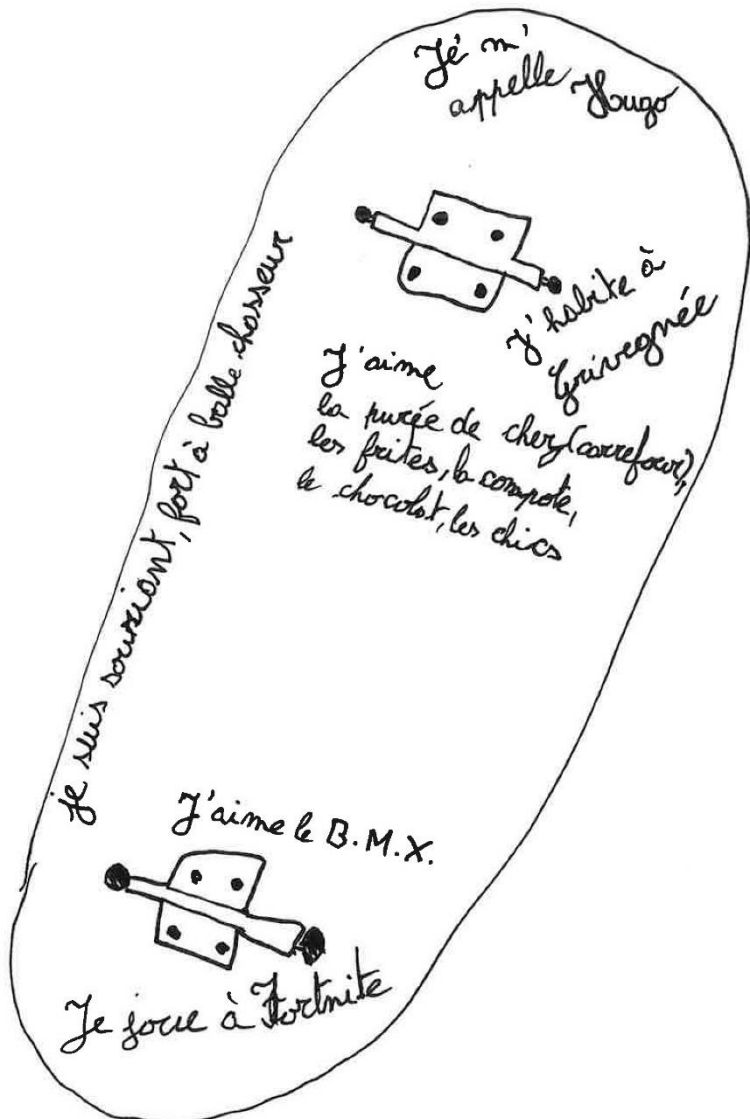 Je m'
appelle Hugo
J'habite à
Grivegnée
J'aime
la purée de chez (carrefour),
les frites, la compote,
le chocolat, les chics
je suis souriant, fort à balle chasseur
J'aime le B.M.X.
Je joue à Fortnite